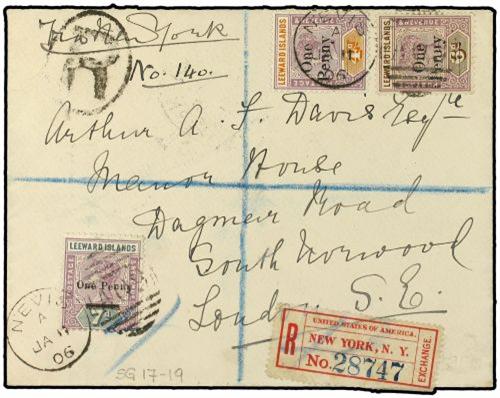 Via New York
R
No. 140.
LEEWARD ISLANDS
One Penny
4d
& REVENUE
LEEWARD ISLANDS
One Penny
5d
Arthur A. F. Davis Esqre
Manor House
Dagmar Road
South Norwood
London S.E.
LEEWARD ISLANDS
One Penny
7d
NEVIS
A
JA 11
06
R
UNITED STATES OF AMERICA.
NEW YORK, N. Y.
No. 28747
EXCHANGE.
SG 17-19